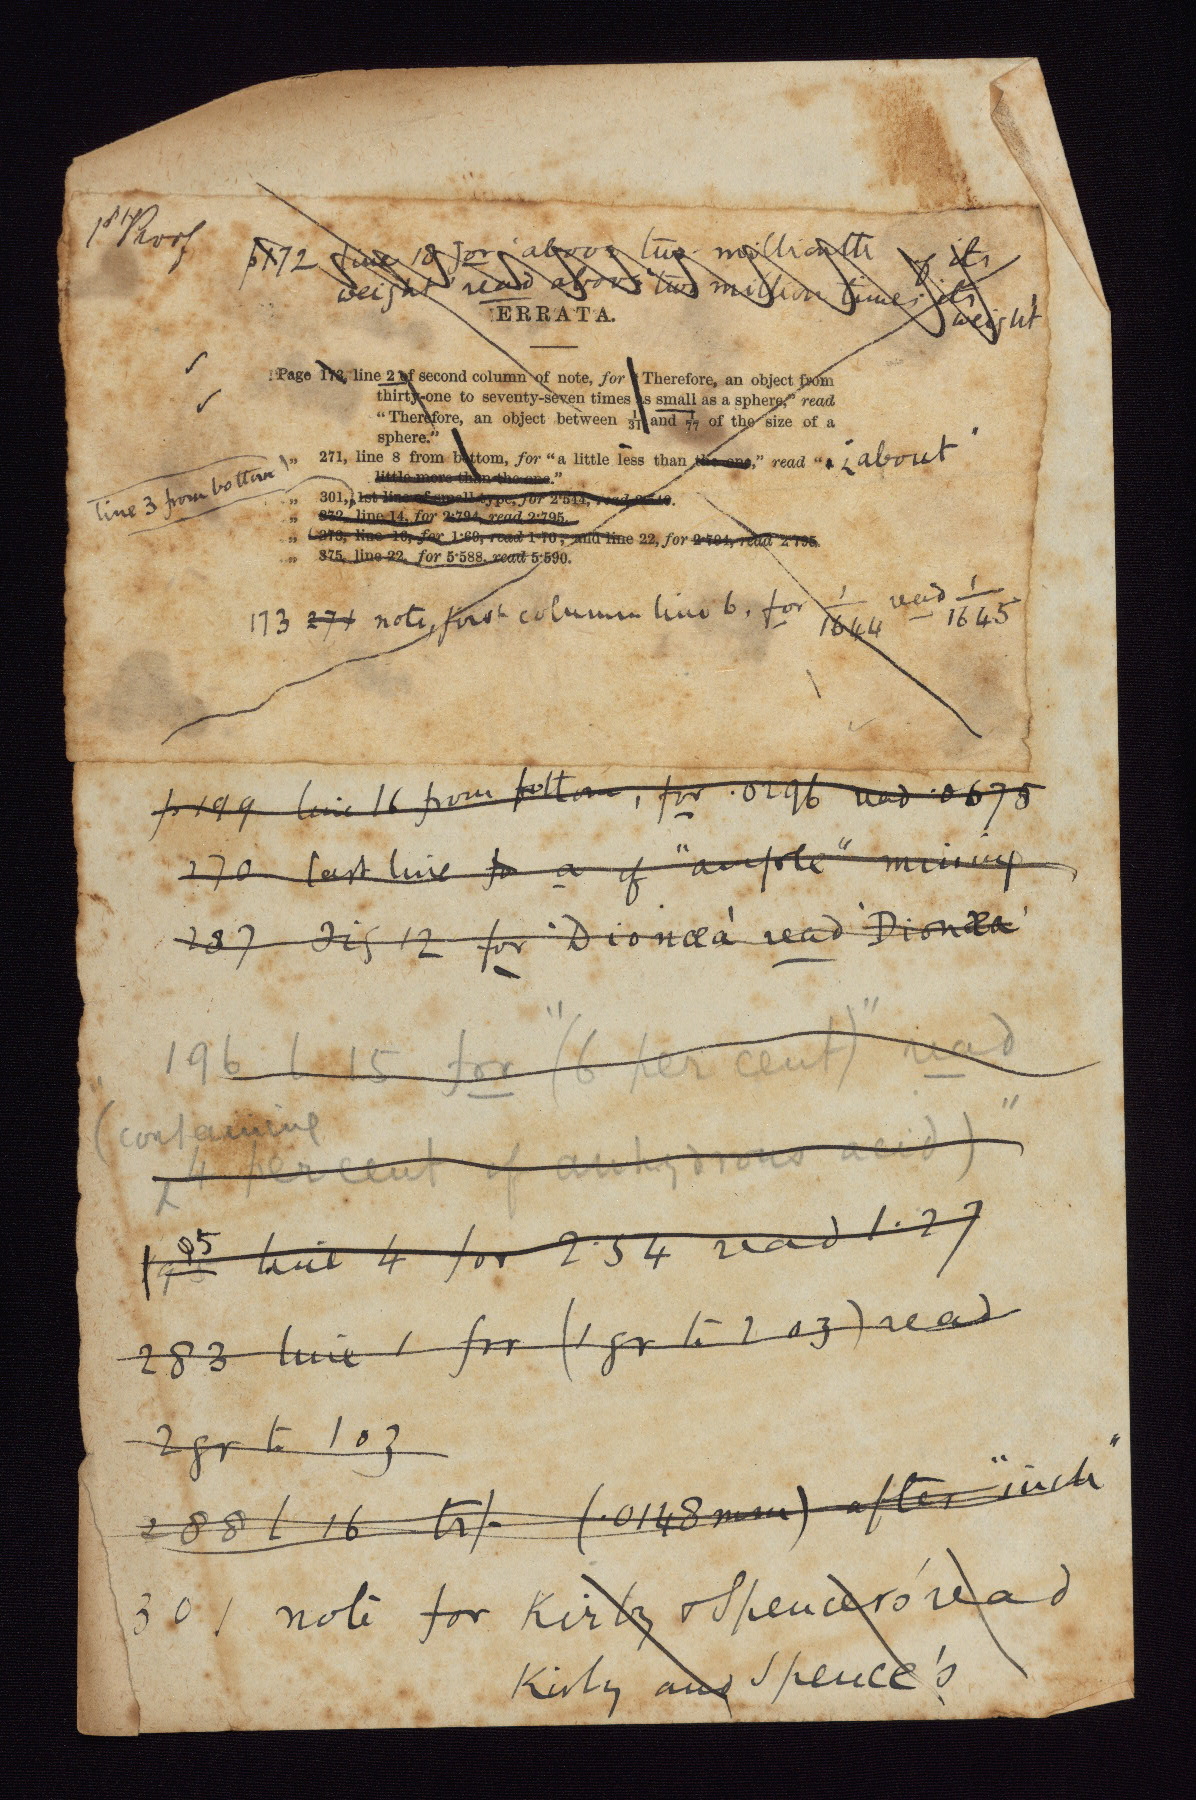 1st Proof
p172 line 18 for "above two millionth of its
weight" read above "two million times its
weight"
ERRATA.
Page 173, line 2 of second column of note, for "Therefore, an object from
thirty-one to seventy-seven times as small as a sphere," read
"Therefore, an object between 1/31 and 1/77 of the size of a
sphere."
„ 271, line 8 from bottom, for "a little less than the one," read "a "about"
little more than the one."
line 3 from bottom
„ 301, 1st line of small type, for 2·544, read
„ 372, line 14, for 2·794, read 2·795.
„ 373, line 16, for 1·69, read 1·70; and line 22, for 2·794, read 2·795
„ 375, line 22, for 5·588, read 5·590.
173 271 note, first column line 6, for 1/1644 read 1/1645
p 199 line 16 from bottom, for ·0296 read ·0675
270 last line a of "ample" missing
287 Fig 12 for 'Dionæa' read 'Dionæa'
196 l 15 for "(6 per cent)" read
"(containing
4 per cent of anhydrous acid)"
195 line 4 for 2·54 read 1·27
283 line 1 for (1 gr to 2 oz) read
2 gr to 1 oz
288 l 16 trs (·0148 mm) after "inch"
301 note for Kirby & Spencers' read
Kirby and Spence's